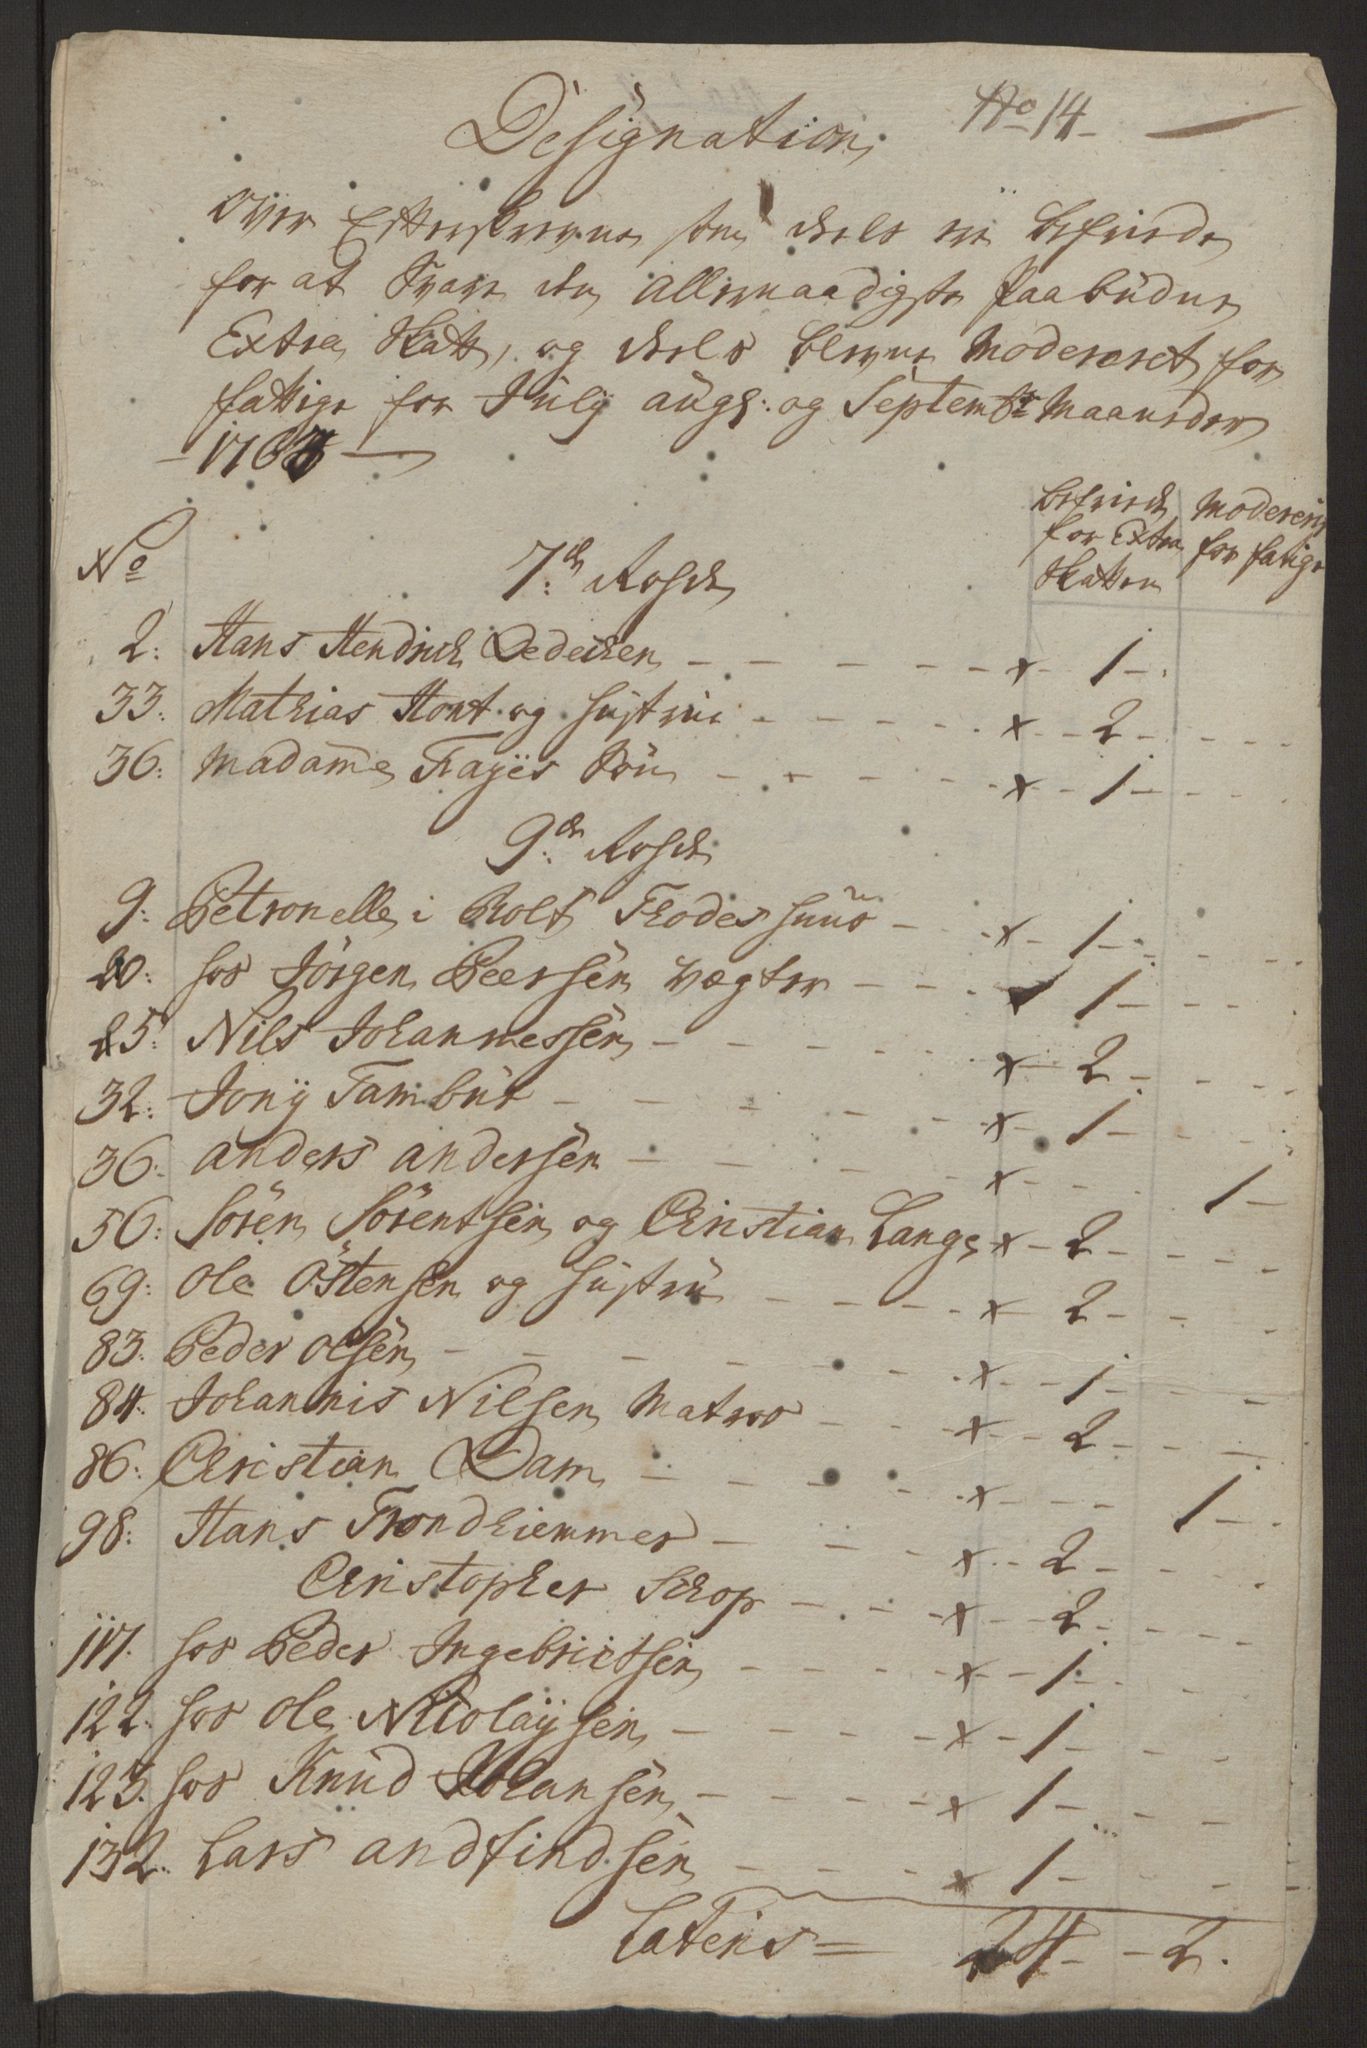 No 14
Designation
Over Efterskrevne som deels er befriede
for at Svare den allernaadigste Paabudne
Extra Skatt, og deels blevne Modereret for
fattige for July augt: og Septembr Maaneder
1763
No
befriede for Extra Skatten
Modereris for fatige
7de Rode
2: Hans Hendrich Dedechen - x 1
33: Mathias Hont og hustrue - x 2
36: Madame Fayes - x 1
9de Rode
9: Petronelle i Rolf Trodes huus - x 1
20: hos Jörgen Peersen vægter - 1
25: Nils Johannessen - x 2
32: Jony Tambur - x 1
36: anders andersen - x 1
56: Sören Sörentsen og Christian Lange x 2
69: Ole Östensen og hustru - x 2
83: Peder olsen - x 1
84: Johannis Nilsen Matros - x 2
86: Christian Dam - x 1
98: Hans Trondhiemmer - x 2
Christopher Schop - x 2
117. hos Peder Ingebrictsen - x 1
122. hos Ole Nicolaysen - x 1
123. hos Knud Johansen - x 1
132. Lars andfindsen - x 1
Lateris = 24 - 2.